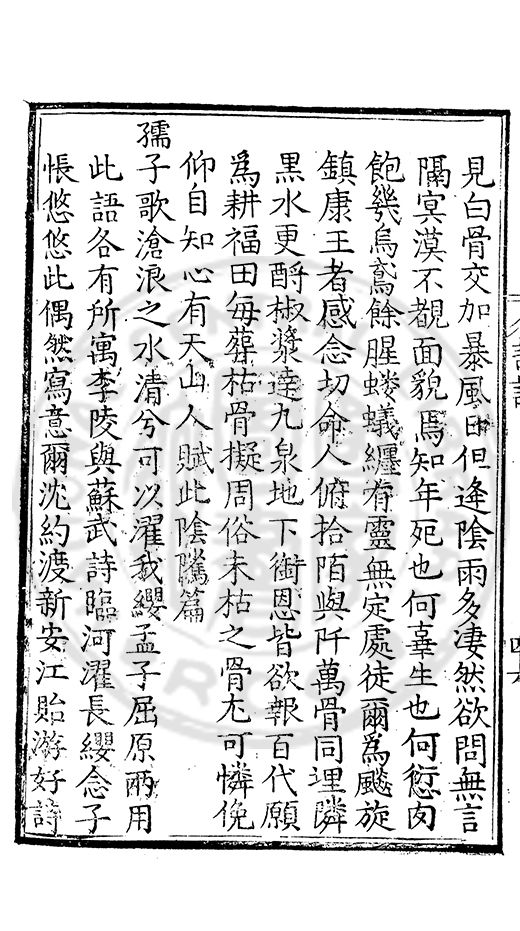 見白骨交加暴風日但逢陰雨多凄然欲問無言
隔冥漠不覩面貌焉知年死也何辜生也何愆肉
飽幾烏鳶餘腥螻蟻纏有靈無定處徒爾為飈旋
鎮康王者感念切命人俯拾陌與阡萬骨同埋隣
黑水更酹椒漿達九泉地下銜恩皆欲報百代願
為耕福田每葬枯骨擬周俗未枯之骨尤可憐俛
仰自知心有天山人賦此陰隲篇
孺子歌滄浪之水清兮可以濯我纓孟子屈原兩用
此語各有所寓李陵與蘇武詩臨河濯長纓念子
悵悠悠此偶然寫意爾沈約渡新安江貽游好詩